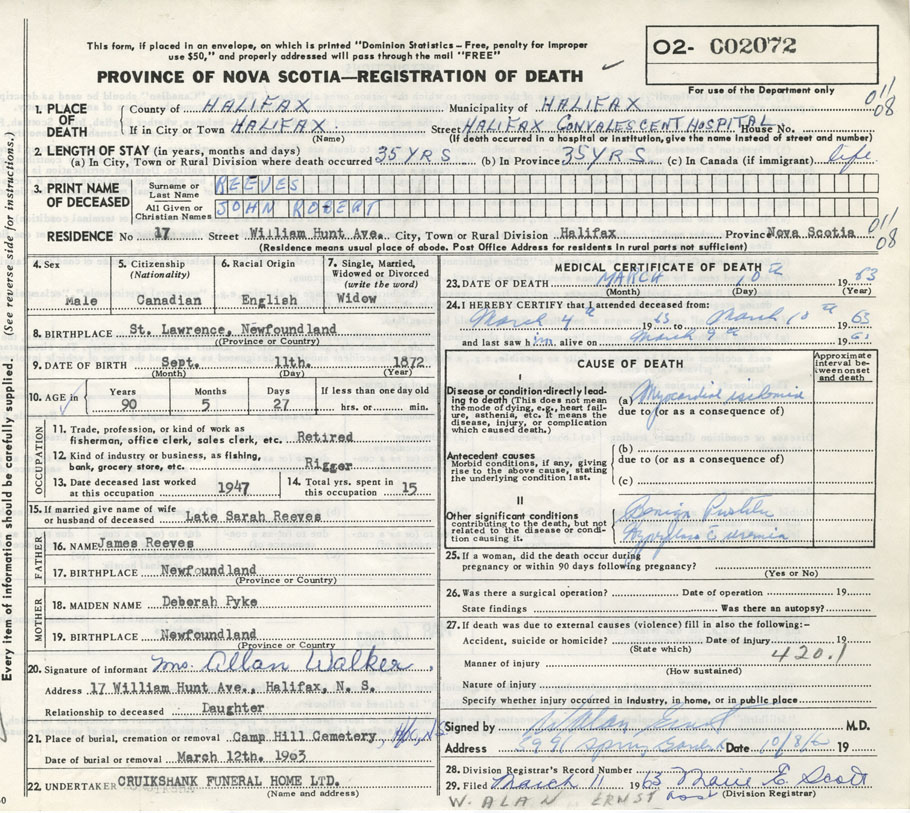 This form, if placed in an envelope, on which is printed "Dominion Statistics – Free, penalty for improper
use $50," and properly addressed will pass through the mail "FREE"
PROVINCE OF NOVA SCOTIA—REGISTRATION OF DEATH
O2- C02072
For use of the Department only
Every item of information should be carefully supplied. (See reverse side for instructions.)
1. PLACE OF DEATH
County of HALIFAX Municipality of HALIFAX
011/08
If in City or Town HALIFAX Street HALIFAX CONVALESCENT HOSPITAL House No.
(Name) (If death occurred in a hospital or institution, give the name instead of street and number)
2. LENGTH OF STAY (in years, months and days)
(a) In City, Town or Rural Division where death occurred 35 YRS (b) In Province 35 YRS (c) In Canada (if immigrant) life
3. PRINT NAME OF DECEASED
Surname or Last Name REEVES
All Given or Christian Names JOHN ROBERT
RESIDENCE No 17 Street William Hunt Ave. City, Town or Rural Division Halifax Province Nova Scotia
011/08
(Residence means usual place of abode. Post Office Address for residents in rural parts not sufficient)
4. Sex
Male
5. Citizenship (Nationality)
Canadian
6. Racial Origin
English
7. Single, Married, Widowed or Divorced (write the word)
Widow
8. BIRTHPLACE St. Lawrence, Newfoundland
((Province or Country)
9. DATE OF BIRTH Sept. 11th. 1872
(Month) (Day) (Year)
10. AGE in
Years Months Days If less than one day old
90 5 27 hrs. or min.
OCCUPATION
11. Trade, profession, or kind of work as
fisherman, office clerk, sales clerk, etc. Retired
12. Kind of industry or business, as fishing,
bank, grocery store, etc. Rigger
13. Date deceased last worked at this occupation 1947
14. Total yrs. spent in this occupation 15
15. If married give name of wife
or husband of deceased Late Sarah Reeves
FATHER
16. NAME James Reeves
17. BIRTHPLACE Newfoundland
(Province or Country)
MOTHER
18. MAIDEN NAME Deborah Pyke
19. BIRTHPLACE Newfoundland
(Province or Country)
20. Signature of informant Mrs. Allan Walker
Address 17 William Hunt Ave., Halifax, N. S.
Relationship to deceased Daughter
21. Place of burial, cremation or removal Camp Hill Cemetery,
Date of burial or removal March 12th. 1963
22. UNDERTAKER CRUIKSHANK FUNERAL HOME LTD.
(Name and address)
MEDICAL CERTIFICATE OF DEATH
23. DATE OF DEATH MARCH 10th 1963
(Month) (Day) (Year)
24. I HEREBY CERTIFY that I attended deceased from:
March 4th 1963 to March 10th 1963
and last saw him alive on March 9th 196
CAUSE OF DEATH
Approximate interval between onset and death
I
Disease or condition directly leading
to death (This does not mean
the mode of dying, e.g., heart failure,
asthenia, etc. It means the
disease, injury, or complication
which caused death.)
(a) Myocardial ischemia
due to (or as a consequence of)
Antecedent causes
Morbid conditions, if any, giving
rise to the above cause, stating
the underlying condition last.
(b)
due to (or as a consequence of)
(c)
II
Other significant conditions
contributing to the death, but not
related to the disease or condition
causing it.
Benign Prostatic
uremia
25. If a woman, did the death occur during
pregnancy or within 90 days following pregnancy?
(Yes or No)
26. Was there a surgical operation? Date of operation 19
State findings Was there an autopsy?
27. If death was due to external causes (violence) fill in also the following:-
Accident, suicide or homicide? Date of injury 19
(State which) 420.1
Manner of injury
(How sustained)
Nature of injury
Specify whether injury occurred in industry, in home, or in public place
Signed by W Alan Ernst M.D.
Address 5991 Spring Garden Date 19
28. Division Registrar's Record Number
29. Filed March 11 1963 Marie E. Scott
(Division Registrar)
W. ALAN ERNST